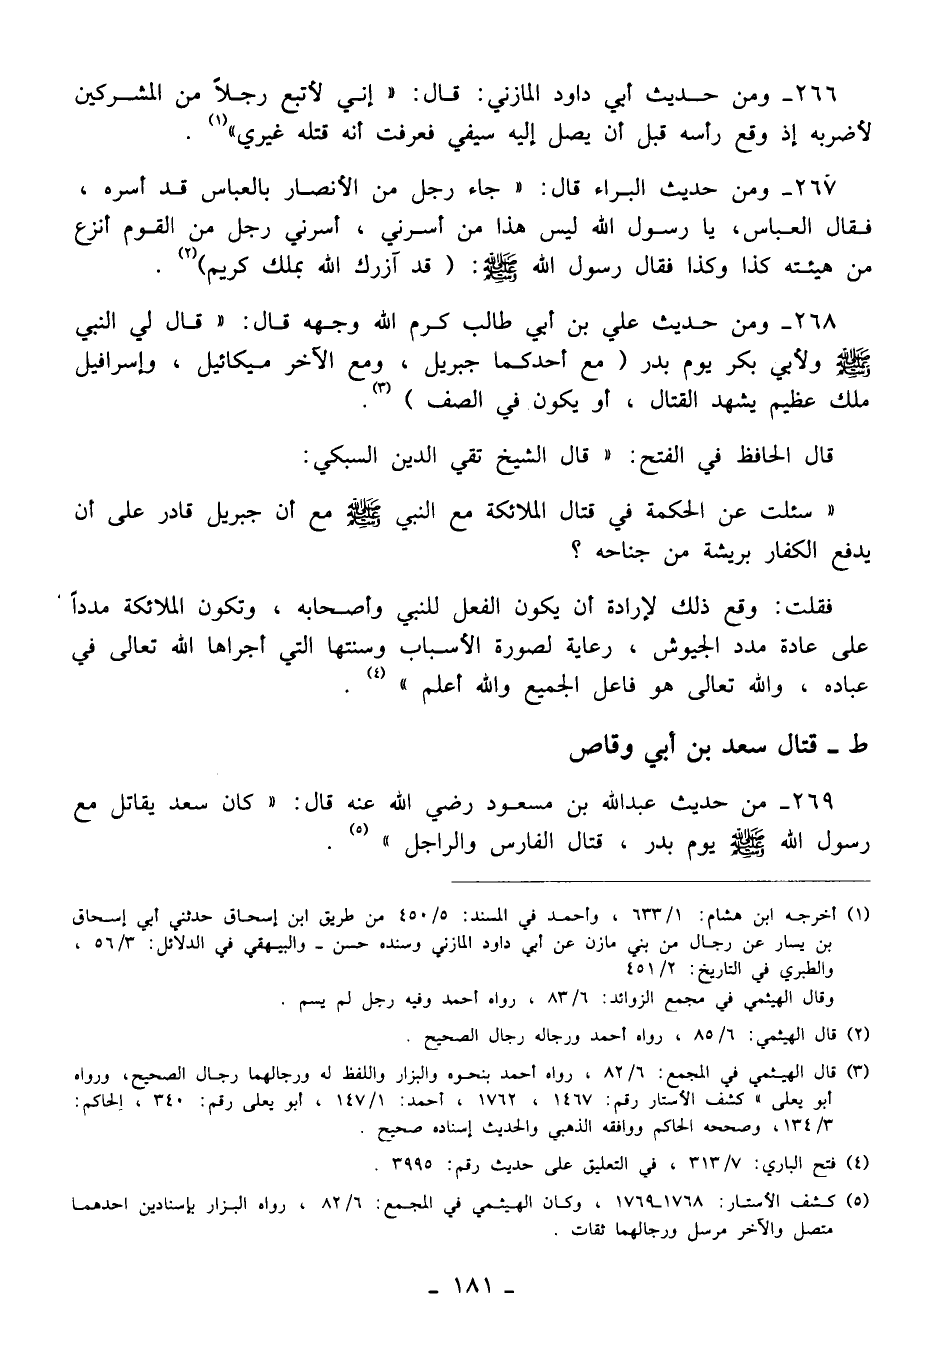 ٢٦٦ـ ومن حـديث أبي داود المازني: قـال: « إنـي لأتبع رجـلاً من المشـركين
لأضربه إذ وقع رأسه قبل أن يصل إليه سيفي فعرفت أنه قتله غيري»(١) .
٢٦٧ـ ومن حديث البـراء قال: « جاء رجل من الأنصـار بالعباس قـد أسره ،
فـقال العـباس، يا رسـول الله ليس هذا من أسـرني ، أسرني رجل من القـوم أنزع
من هيئـته كذا وكذا فقال رسول الله ﷺ: ( قد آزرك الله بملك كريم)(٢) .
٢٦٨ـ ومن حـديث علي بن أبي طالب كـرم الله وجـهه قـال: « قـال لي النبي
ﷺ ولأبي بكر يوم بدر ( مع أحدكـما جبريل ، ومع الآخر مـيكائيل ، وإسرافيل
ملك عظيم يشهد القتال ، أو يكون في الصف ) (٣).
قال الحافظ في الفتح: « قال الشيخ تقي الدين السبكي:
« سئلت عن الحكمة في قتال الملائكة مع النبي ﷺ مع أن جبريل قادر على أن
يدفع الكفار بريشة من جناحه ؟
فقلت: وقع ذلك لإرادة أن يكون الفعل للنبي وأصـحابه ، وتكون الملائكة مدداً
على عادة مدد الجيوش ، رعاية لصورة الأسـباب وسنتها التي أجراها الله تعالى في
عباده ، والله تعالى هو فاعل الجميع والله أعلم » (٤) .
ط ـ قتال سعد بن أبي وقاص
٢٦٩ـ من حديث عبدالله بن مسعود رضي الله عنه قال: « كان سعد يقاتل مع
رسول الله ﷺ يوم بدر ، قتال الفارس والراجل » (٥) .
(١) أخرجـه ابن هشام: ٦٣٣/١ ، وأحمـد في المسند: ٤٥٠/٥ من طريق ابن إسحـاق حدثني أبي إسـحاق
بن يسار عن رجـال من بني مازن عن أبي داود المازني وسنده حسن ـ والبيـهقي في الدلائل: ٥٦/٣ ،
والطبري في التاريخ: ٤٥١/٢
وقال الهيثمي في مجمع الزوائد: ٨٣/٦ ، رواه أحمد وفيه رجل لم يسم .
(٢) قال الهيثمي: ٨٥/٦ ، رواه أحمد ورجاله رجال الصحيح .
(٣) قال الهيثمي في المجمع: ٨٢/٦ ، رواه أحمد بنحوه والبزار واللفظ له ورجالهما رجـال الصحيح، ورواه
أبو يعلى » كشف الأستار رقم: ١٤٦٧ ، ١٧٦٢ ، أحمد: ١٤٧/١ ، أبو يعلى رقم: ٣٤٠ ، الحاكم:
١٣٤/٣، وصححه الحاكم ووافقه الذهبي والحديث إسناده صحيح .
(٤) فتح الباري: ٣١٣/٧ ، في التعليق على حديث رقم: ٣٩٩٥ .
(٥) كـشف الأسـتار: ١٧٦٨ـ١٧٦٩ ، وكـان الهـيثـمي في المجـمع: ٨٢/٦ ، رواه البـزار بإسنادين احدهمـا
متصل والآخر مرسل ورجالهما ثقات .
ـ ١٨١ ـ